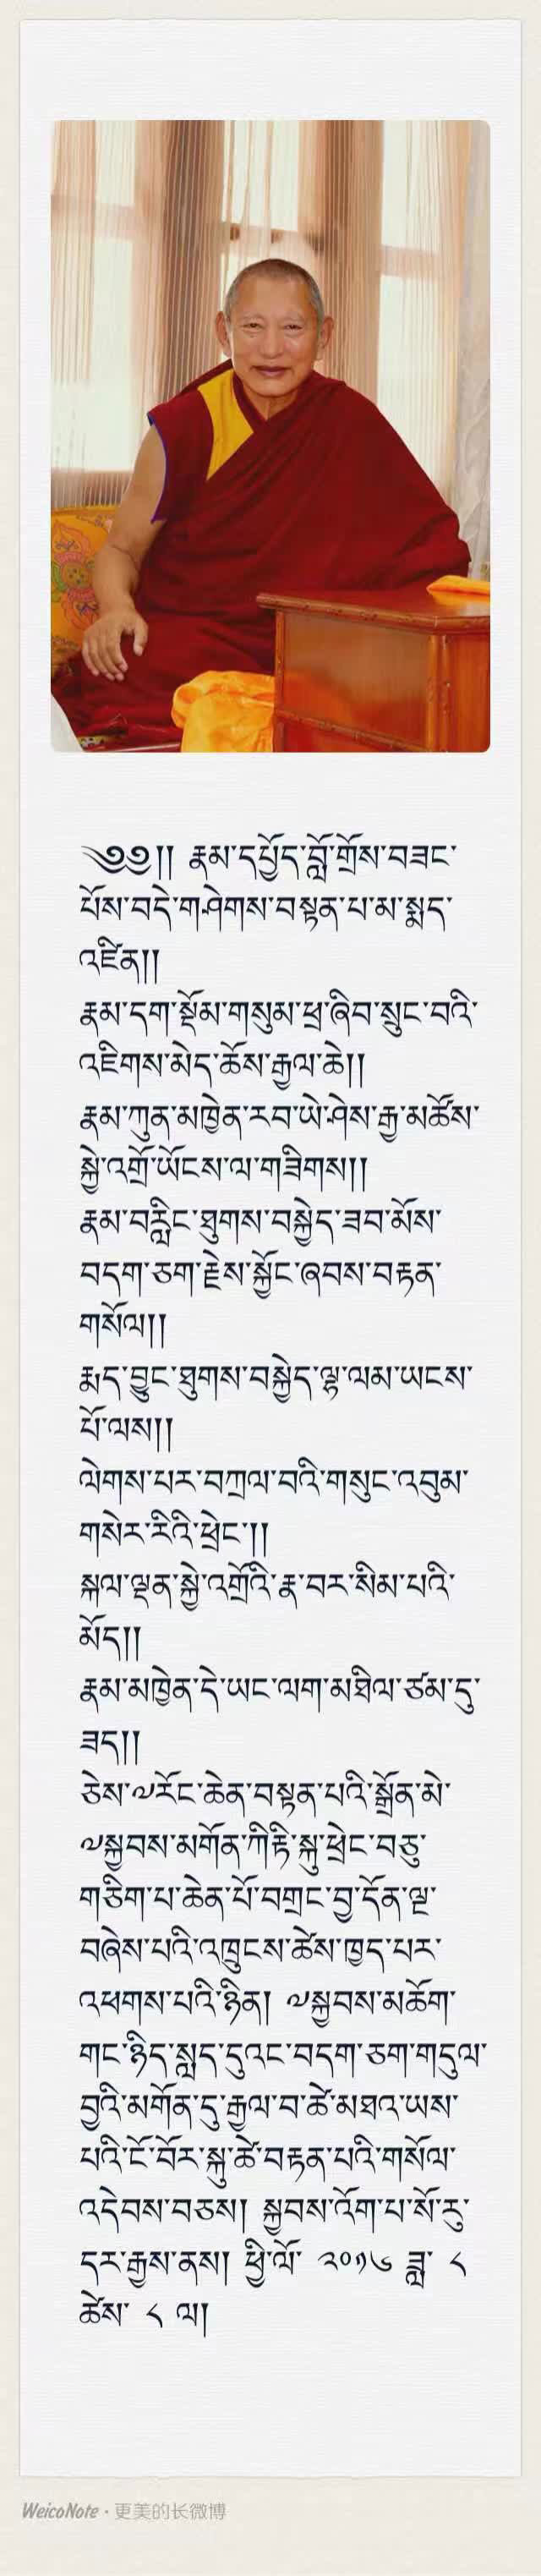 ༄༅།། རྣམ་དཔྱོད་བློ་གྲོས་བཟང་
པོས་བདེ་གཤེགས་བསྟན་པ་མ་སྨད་
འཛིན།།
རྣམ་དག་སྡོམ་གསུམ་ཕྲ་ཞིབ་སྲུང་བའི་
འཇིགས་མེད་ཆོས་རྒྱལ་ཆེ།།
རྣམ་ཀུན་མཁྱེན་རབ་ཡེ་ཤེས་རྒྱ་མཚོས་
སྐྱེ་འགྲོ་ཡོངས་ལ་གཟིགས།།
རྣམ་བརླིང་ཐུགས་བསྐྱེད་ཟབ་མོས་
བདག་ཅག་རྗེས་སྐྱོང་ཞབས་བརྟན་
གསོལ།།
རྨད་བྱུང་ཐུགས་བསྐྱེད་ལྷ་ལམ་ཡངས་
པོ་ལས།།
ལེགས་པར་བཀྲལ་བའི་གསུང་འབུམ་
གསེར་རིའི་ཕྲེང་།།
སྐལ་ལྡན་སྐྱེ་འགྲོའི་རྣ་བར་སིམ་པའི་
མོད།།
རྣམ་མཁྱེན་དེ་ཡང་ལག་མཐིལ་ཙམ་དུ་
ཟད།།
ཅེས་༧རོང་ཆེན་བསྟན་པའི་སྒྲོན་མེ་
༧སྐྱབས་མགོན་ཀིརྟི་སྐུ་ཕྲེང་བཅུ་
གཅིག་པ་ཆེན་པོ་བགྲང་བྱ་དོན་ལྔ་
བཞེས་པའི་འཁྲུངས་ཚེས་ཁྱད་པར་
འཕགས་པའི་ཉིན། ༧སྐྱབས་མཆོག་
གང་ཉིད་སླད་དུའང་བདག་ཅག་གདུལ་
བྱའི་མགོན་དུ་རྒྱལ་བ་ཚེ་མཐའ་ཡས་
པའི་ངོ་བོར་སྐུ་ཚེ་བརྟན་པའི་གསོལ་
འདེབས་བཅས། སྐྱབས་འོག་པ་སོ་རུ་
དར་རྒྱས་ནས། ཕྱི་ལོ་ ༢༠༡༦ ཟླ་ ༨
ཚེས་ ༨ ལ།
WeicoNote · 更美的长微博